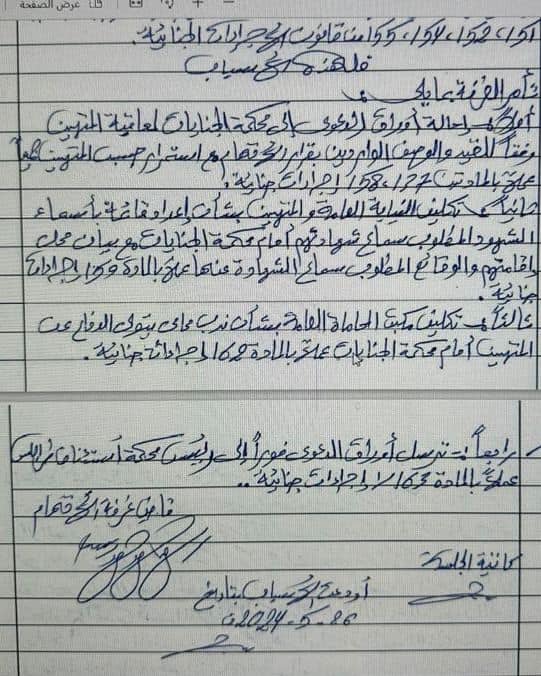 عرض الصفحة
151، 152، 154، 155 من قانون الإجراءات الجنائية.
فلهذه الأسباب
تأمر الغرفة بما يلي
أولاً :- إحالة أوراق الدعوى إلى محكمة الجنايات لمعاقبة المتهمين
وفقاً للقيد والوصف الواردين بقرار الاتهام مع استمرار حبس المتهمين
عملاً بالمادتين 177، 158 إجراءات جنائية.
ثانياً :- تكليف النيابة العامة والمتهمين بشأن إعداد قائمة بأسماء
الشهود المطلوب سماع شهادتهم أمام محكمة الجنايات مع بيان محل
إقامتهم والوقائع المطلوب سماع الشهادة عنها عملاً بالمادة إجراءات
جنائية.
ثالثاً :- تكليف مكتب المحاماة العامة بشأن ندب محامي يتولى الدفاع عن
المتهمين أمام محكمة الجنايات عملاً بالمادة 162 إجراءات جنائية.
رابعاً :- ترسل أوراق الدعوى فوراً إلى رئيس محكمة استئناف طرابلس
عملاً بالمادة إجراءات جنائية..
قاضي غرفة الاتهام
كاتبة الجلسة
أودعت الأسباب بتاريخ
26-5-2024ف